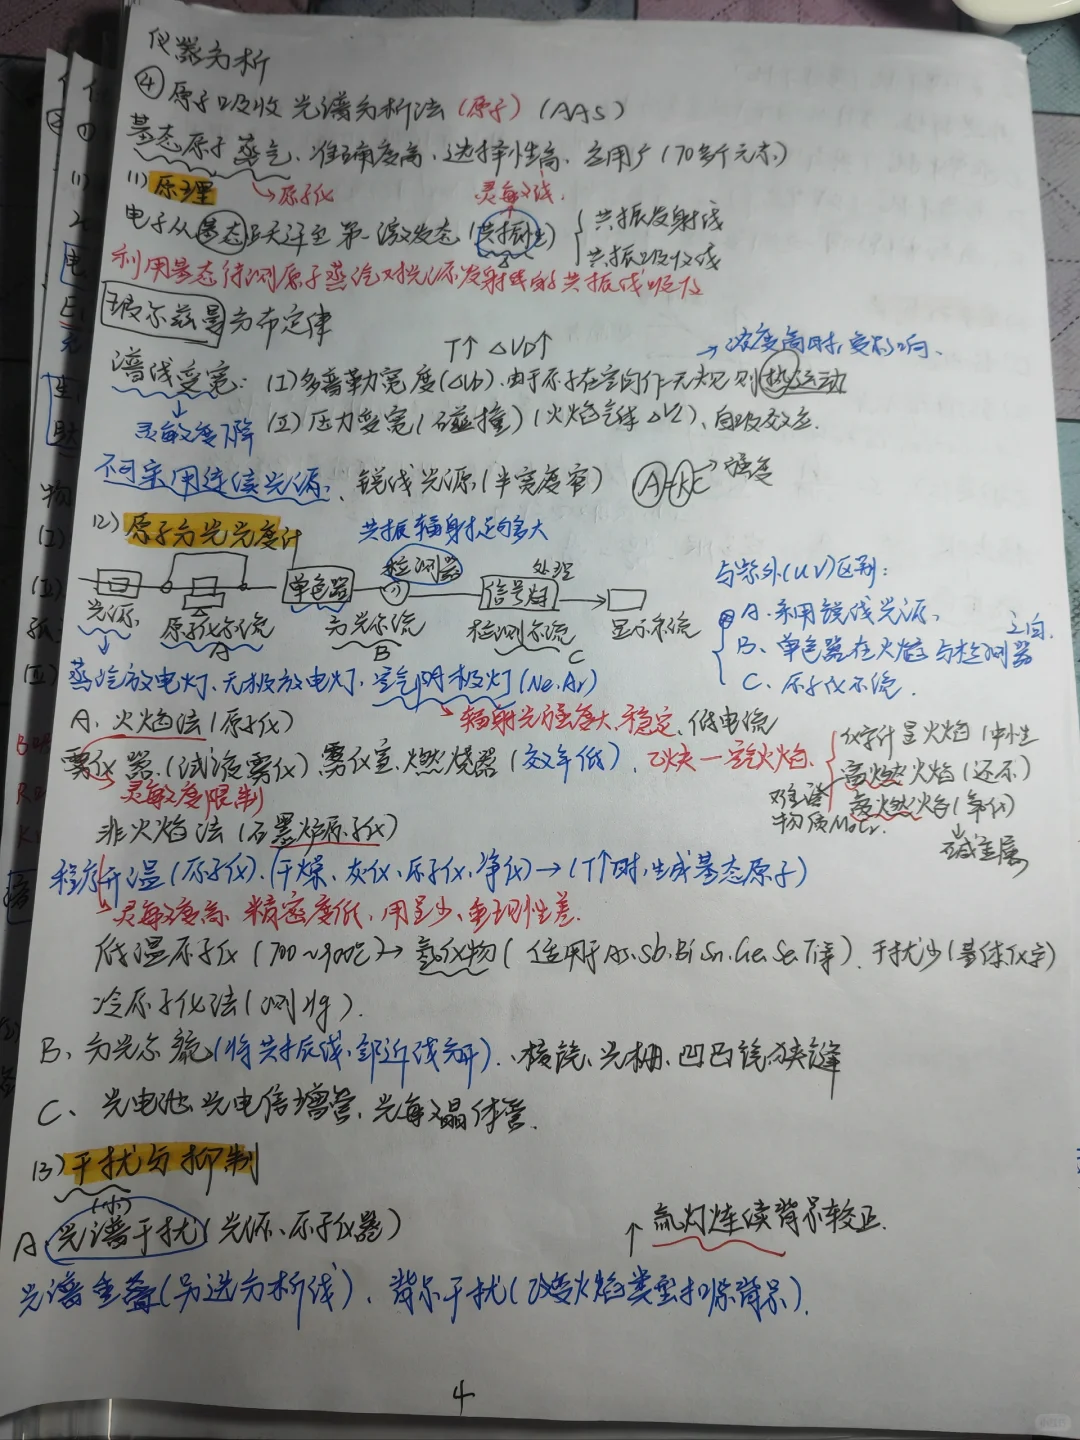 仪器分析
④原子吸收光谱分析法(原子)(AAS)
基态原子蒸气、准确度高、选择性高、应用广(70多个元素)
(1)原理 →原子化 灵敏线
电子从基态跃迁至第一激发态(共振线) { 共振发射线
共振吸收线
利用基态待测原子蒸汽对光源发射线的共振线吸收
玻尔兹曼分布定律
T↑ △VD↑ →浓度高时,受影响、
谱线变宽: (I)多普勒宽度(△Vb).由于原子在空间作无规则热运动
↓灵敏度下降 (II)压力变宽(碰撞)(火焰气体△VL)、自吸效应.
不可采用连续光源、锐线光源(半宽度窄) A=KC→强度
(2)原子分光光度计 共振辐射
单色器 检测器 信号 处理
光源 原子化系统 分光系统 检测系统 显示系统
A B C
与紫外(UV)区别:
A.采用锐线光源、
B、单色器在火焰与检测器之间.
C、原子化系统.
蒸汽放电灯、无极放电灯、空气阴极灯(Ne.Ar)
→辐射光强度大、稳定、低电流
A、火焰法(原子化)
雾化器、(试液雾化)雾化室、燃烧器(效率低)、乙炔—空气火焰、 { 化学计量火焰(中性
→灵敏度限制 富燃火焰(还原)
难熔物质 Mo Cr. 贫燃火焰(氧化)
↓碱金属
非火焰法(石墨炉原子化)
程序升温(原子化)、(干燥、灰化、原子化、净化)→(T↑时,生成基态原子)
→灵敏度高、精密度低、用量少、重现性差.
低温原子化(700~900℃)→氢化物(适用于As.Sb.Bi.Sn.Ge.Se.Ti等)、干扰少(基体化学)
冷原子化法(测Hg).
B、分光系统(将共振线、邻近线分开)、棱镜、光栅、凹凸镜、狭缝
C、光电池、光电倍增管、光敏晶体管.
(3)干扰与抑制
(小)
A、光谱干扰(光源、原子化器) ↑氘灯连续背景校正.
光谱重叠(另选分析线)、背景干扰(改变火焰类型扣除背景).
4